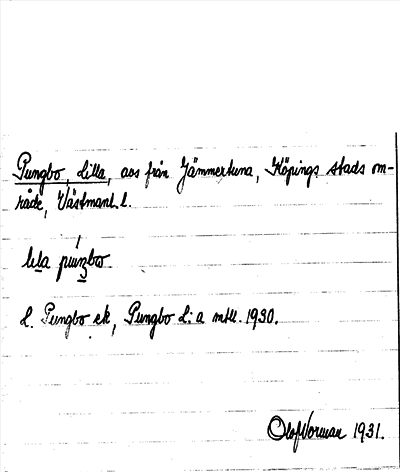 Pungbo, Lilla, avs från Jämmertuna, Köpings stads om-
råde, Västmanl. l.
lila puŋbo
L. Pungbo ek, Pungbo L:a mtl. 1930.
Olof Norman 1931.